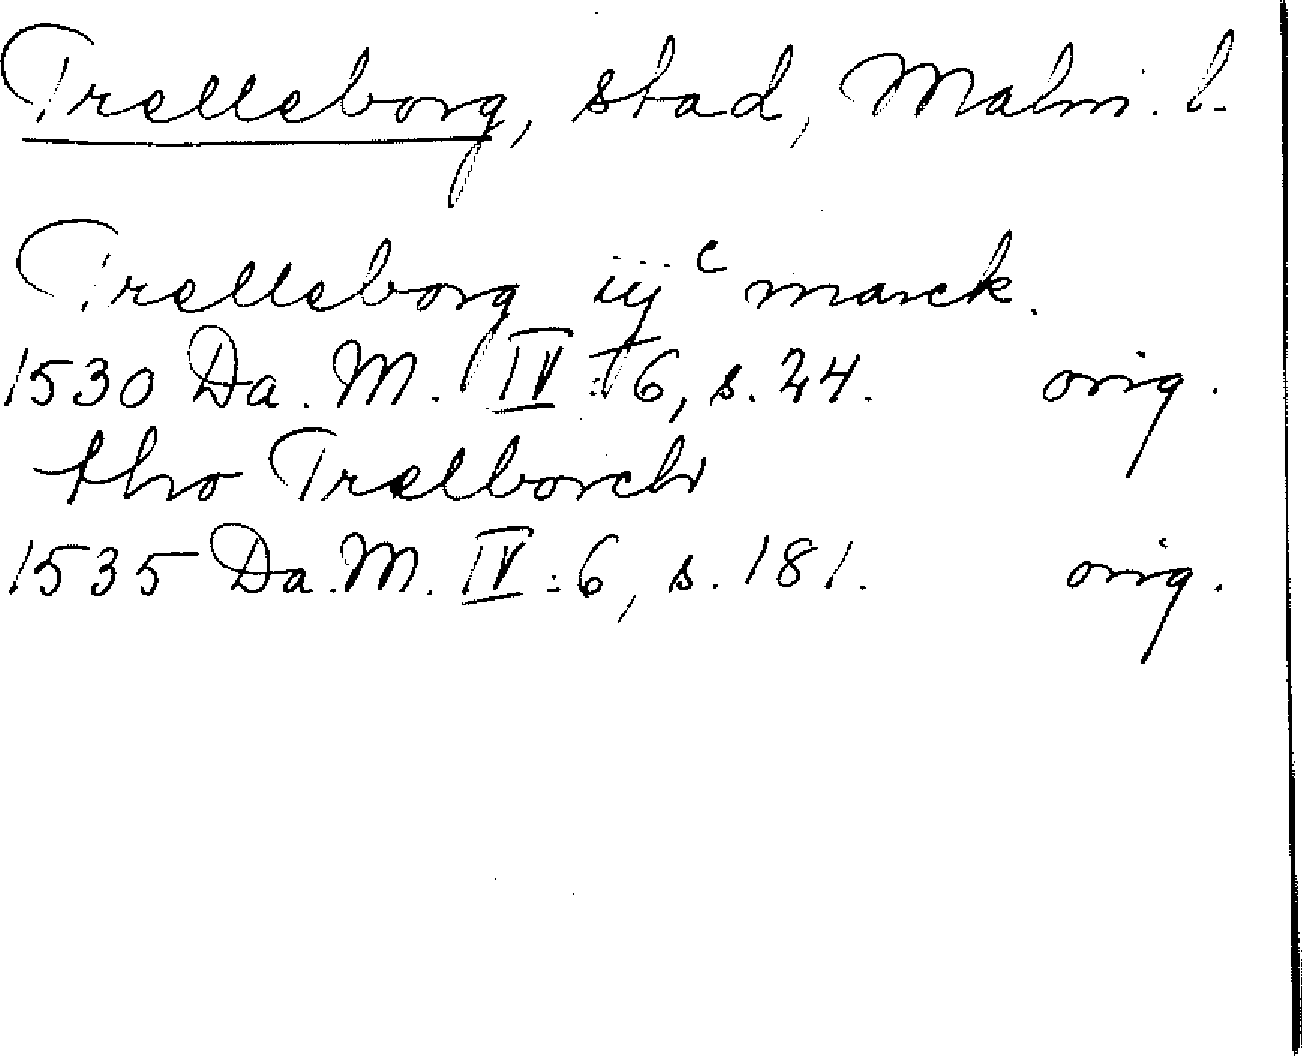 Trelleborg, stad, Malm. l.
Trelleborg iij c marck.
1530 Da. M. IV:6, s. 24. orig.
thro Trelborch
1535 Da. M. IV:6, s. 181. orig.